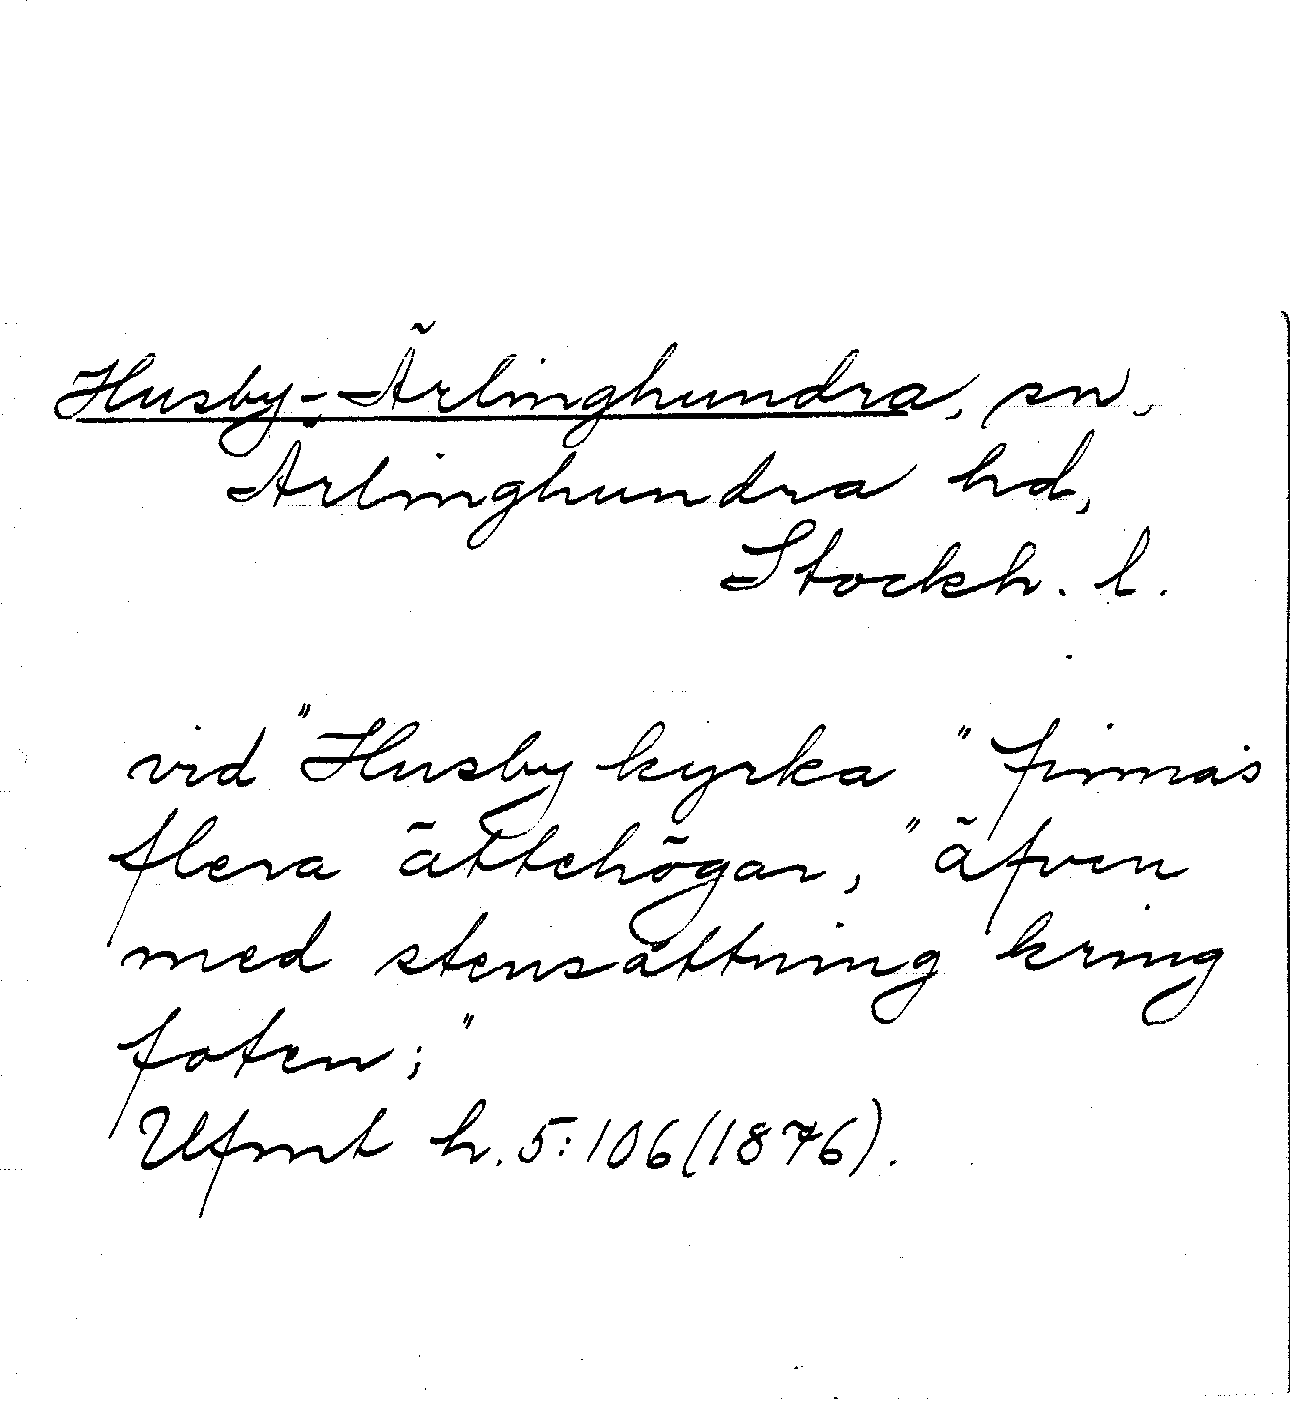 Husby-Ärlinghundra, sn,
Ärlinghundra hd,
Stockh. l.
vid "Husby kyrka" finnas
flera ättehögar, "äfven
med stensättning kring
foten;"
Ufmt h. 5:106(1876).